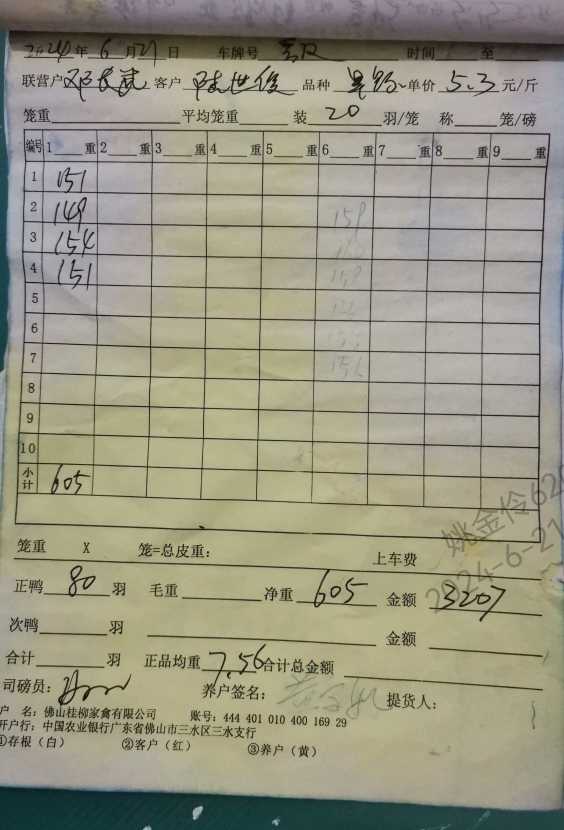 2024年6月21日 车牌号 时间 至
联营户 客户 陆世俊 品种 单价 5.3 元/斤
笼重 平均笼重 装 20 羽/笼 称 笼/磅
编号 1 重 2 重 3 重 4 重 5 重 6 重 7 重 8 重 9 重
1 151
2 149 159
3 154
4 151 159
5
6
7 156
8
9
10
小计 605
笼重 X 笼=总皮重: 上车费
正鸭 80 羽 毛重 净重 605 金额 3207
次鸭 羽 金额
合计 羽 正品均重 7.56 合计总金额
司磅员: 养户签名: 提货人:
户 名: 佛山桂柳家禽有限公司 账号: 444 401 010 400 169 29
开户行: 中国农业银行广东省佛山市三水区三水支行
①存根(白) ②客户(红) ③养户(黄)
姚金伶620
2024-6-21